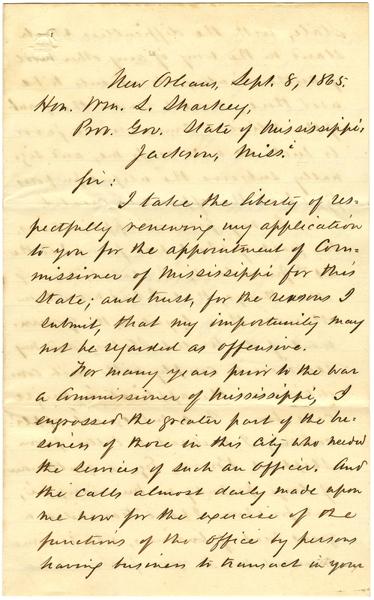 New Orleans, Sept. 8, 1865.
Hon. Wm. L. Sharkey,
Prov. Gov. State of Mississippi,
Jackson, Miss.
Sir:
I take the liberty of res-
pectfully renewing my application
to you for the appointment of Com-
missioner of Mississippi for this
State; and trust, for the reasons I
submit, that my importunity may
not be regarded as offensive.
For many years prior to the war
a Commissioner of Mississippi, I
engrossed the greater part of the bu-
siness of those in this City who needed
the services of such an officer. And
the calls almost daily made upon
me now for the exercise of the
functions of the office by persons
having business to transact in your